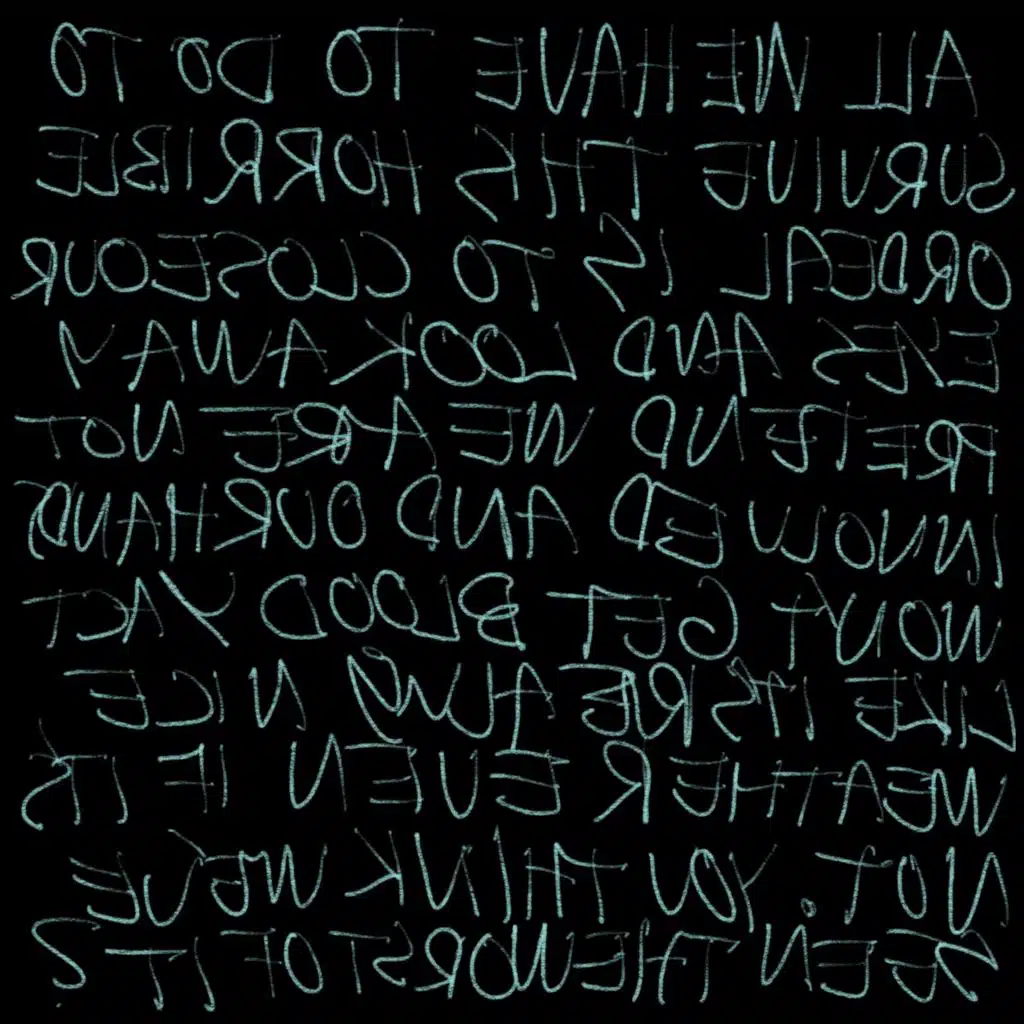 ALL WE HAVE TO DO TO
SURVIVE THIS HORRIBLE
ORDEAL IS TO CLOSE OUR
EYES AND LOOK AWAY
PRETEND WE ARE NOT
INVOLVED AND OUR HANDS
WON'T GET BLOODY ACT
LIKE IT'S REALLY NICE
WEATHER EVEN IF ITS
NOT. YOU THINK WE'VE
SEEN THE WORST OF IT?